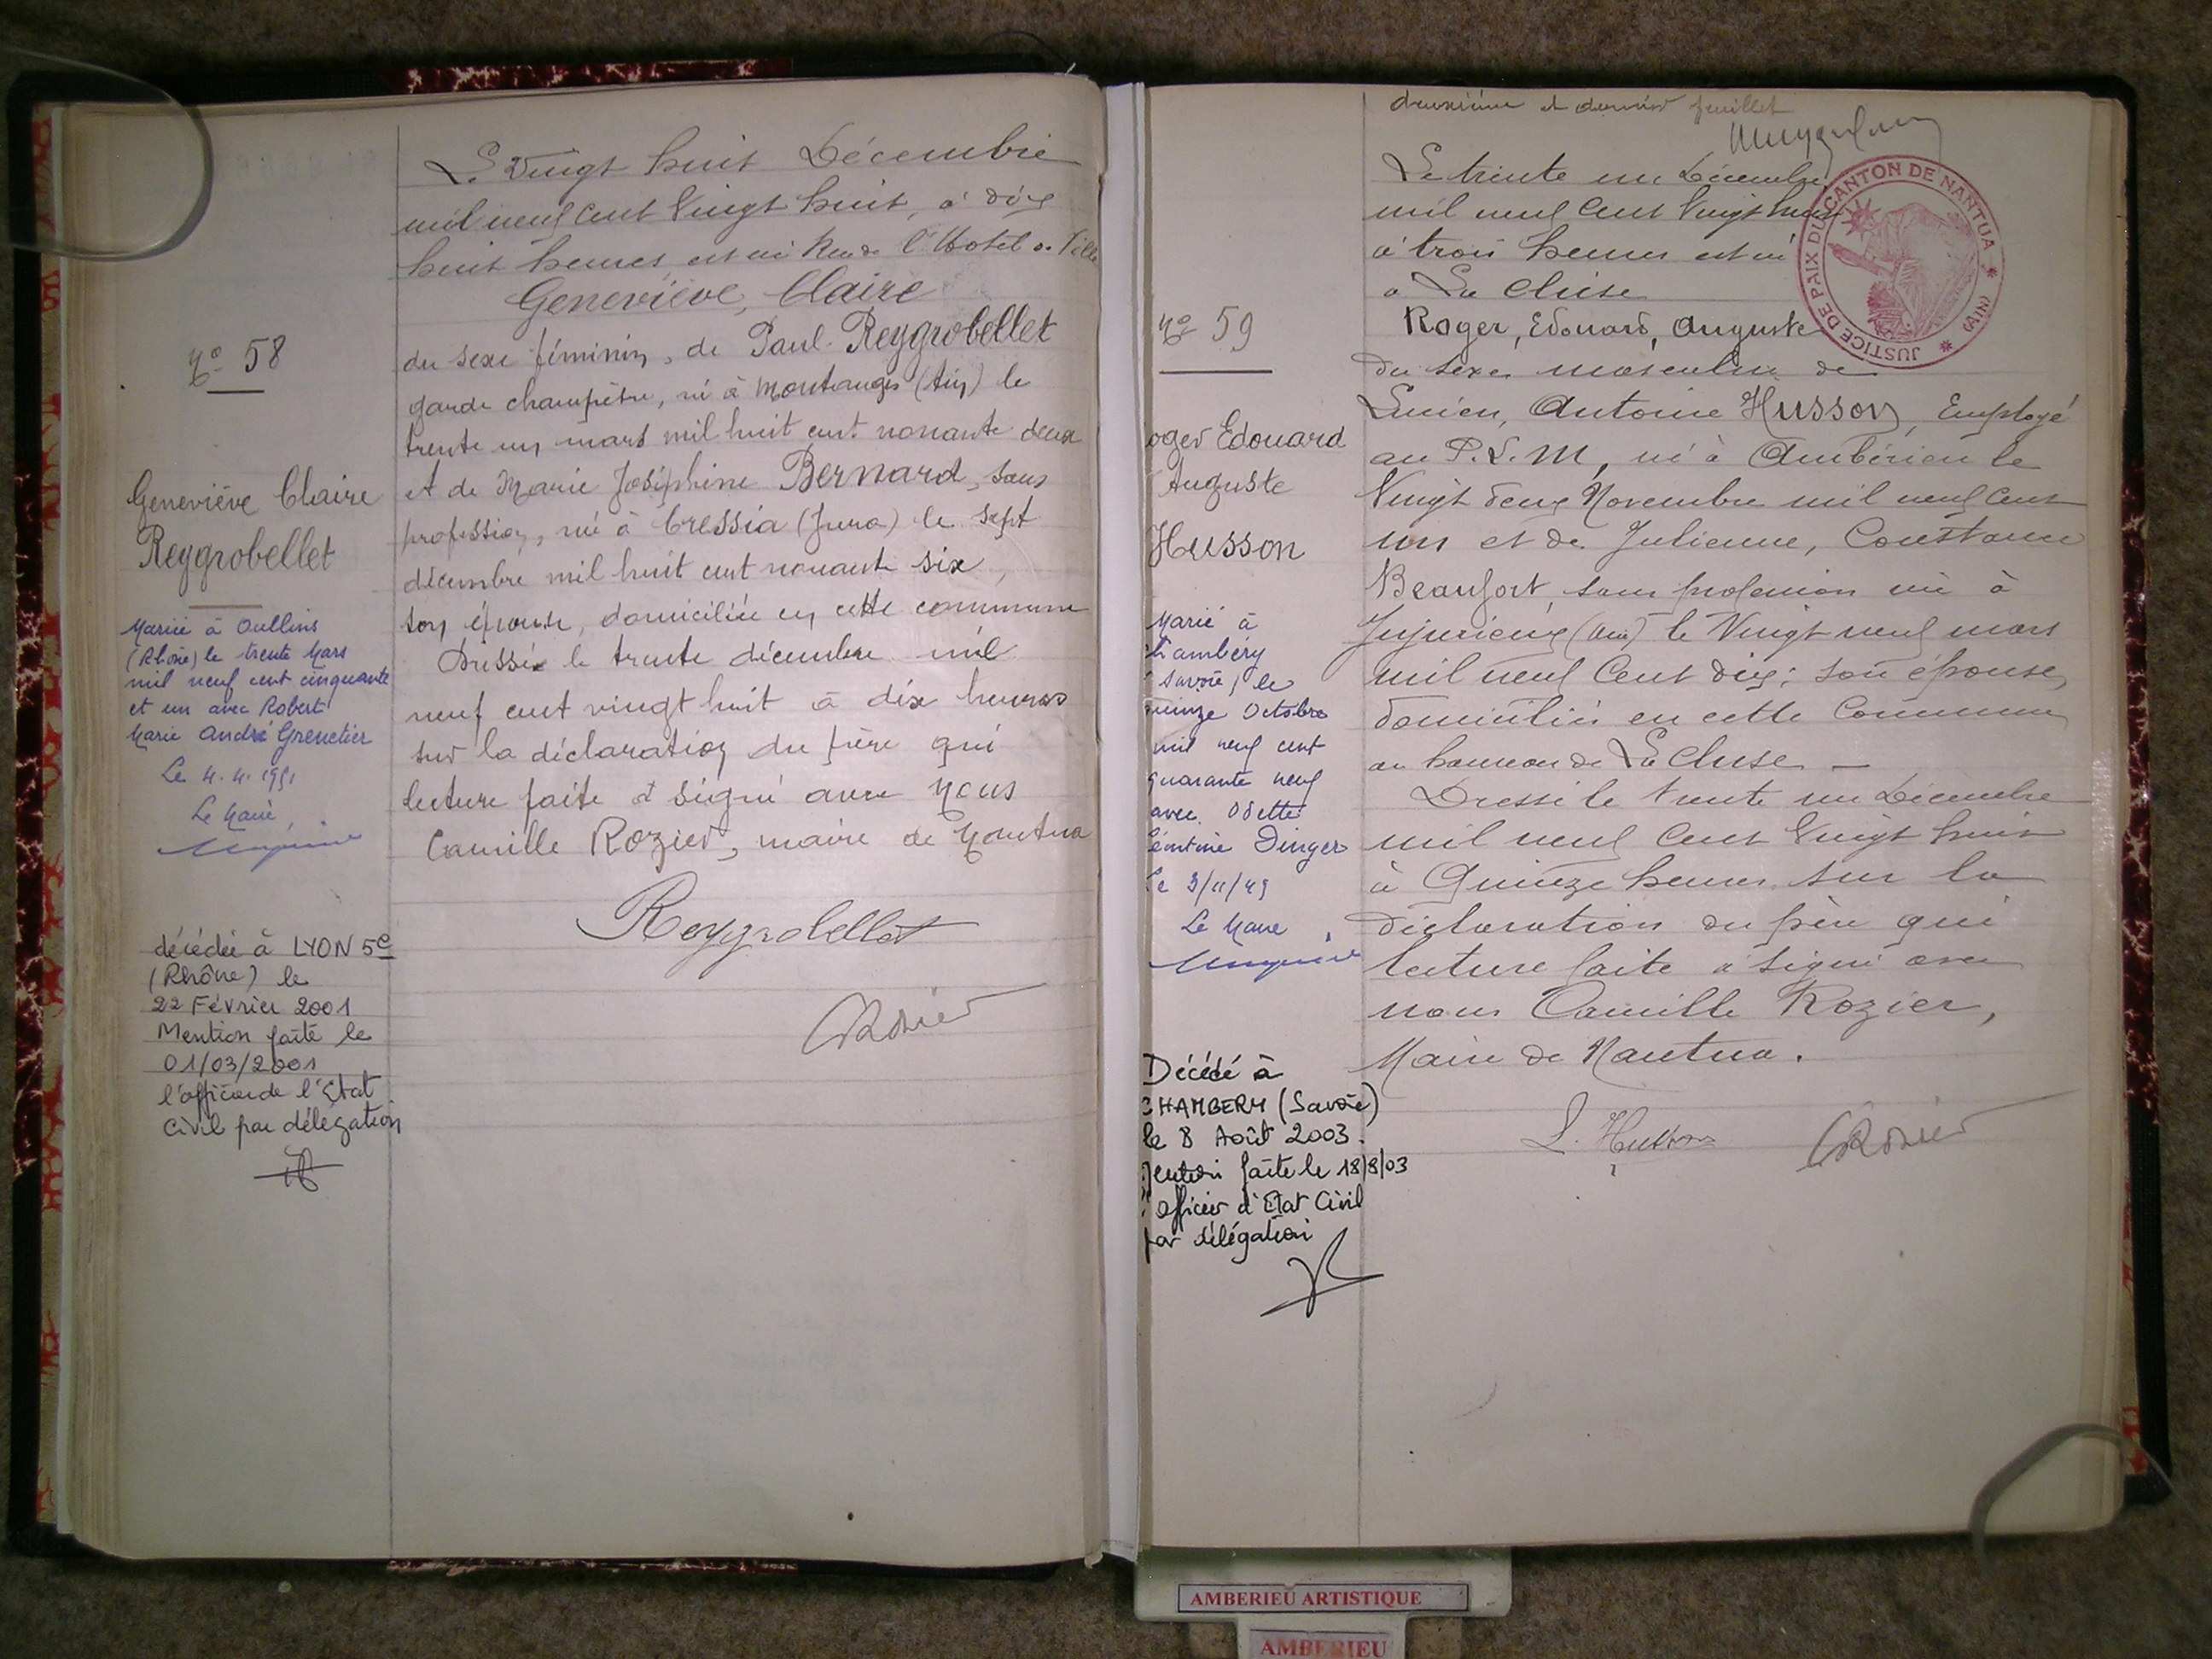 Nº 58
Geneviève Claire
Reygrobellet
Mariée à Oullins
(Rhône) le trente Mars
mil neuf cent cinquante
et un avec Robert
Marie André Grenetier
Le 4.4.1951
Le Maire,
décédée à LYON 5e
(Rhône) le
22 Février 2001
Mention faite le
01/03/2001
l'officier de l'Etat
Civil par délégation
Le Vingt huit Décembre
mil neuf cent Vingt huit, à dix
huit heures est né Rue de l'Hotel de Ville
Geneviève, Claire
du sexe féminin, de Paul Reygrobellet
garde champêtre, né à Montanges (Ain) le
trente un mars mil huit cent nonante deux
et de Marie Joséphine Bernard, sans
profession, née à Cressia (Jura) le sept
décembre mil huit cent nonante six,
son épouse, domiciliée en cette commune
Dressé le trente décembre mil
neuf cent vingt huit à dix heures
sur la déclaration du père qui
lecture faite a signé avec Nous
Camille Rozier, maire de Nantua
Reygrobellet
CRozier
deuxième et dernier feuillet
JUSTICE DE PAIX DU CANTON DE NANTUA * (AIN) *
Nº 59
oger Edouard
Auguste
Husson
Marié à
hambéry
Savoie) le
quinze Octobre
mil neuf cent
quarante neuf
avec Odette
Léontine Dinger
Le 3/11/49
Le Maire,
Décédé à
CHAMBERY (Savoie)
le 8 Août 2003.
Mention faite le 18/8/03
officier d'Etat Civil
par délégation
Le trente un Décembre
mil neuf Cent Vingt huit
à trois heures est né
à La Cluse
Roger, Edouard, Auguste
du sexe masculin de
Lucien, Antoine Husson, Employé
au P.L.M, né à Ambérieu le
Vingt deux Novembre mil neuf Cent
un et de Julienne, Constance
Beaufort, sans profession née à
Jujurieux (Ain) le Vingt neuf mars
mil neuf Cent dix; son épouse,
domiciliés en cette Commune
au hameau de La Cluse —
Dressé le trente un Décembre
mil neuf Cent Vingt huit
à Quinze heures sur la
déclaration du père qui
lecture faite a signé avec
nous Camille Rozier,
Maire de Nantua.
L. Husson
CRozier
AMBERIEU ARTISTIQUE
AMBERIEU